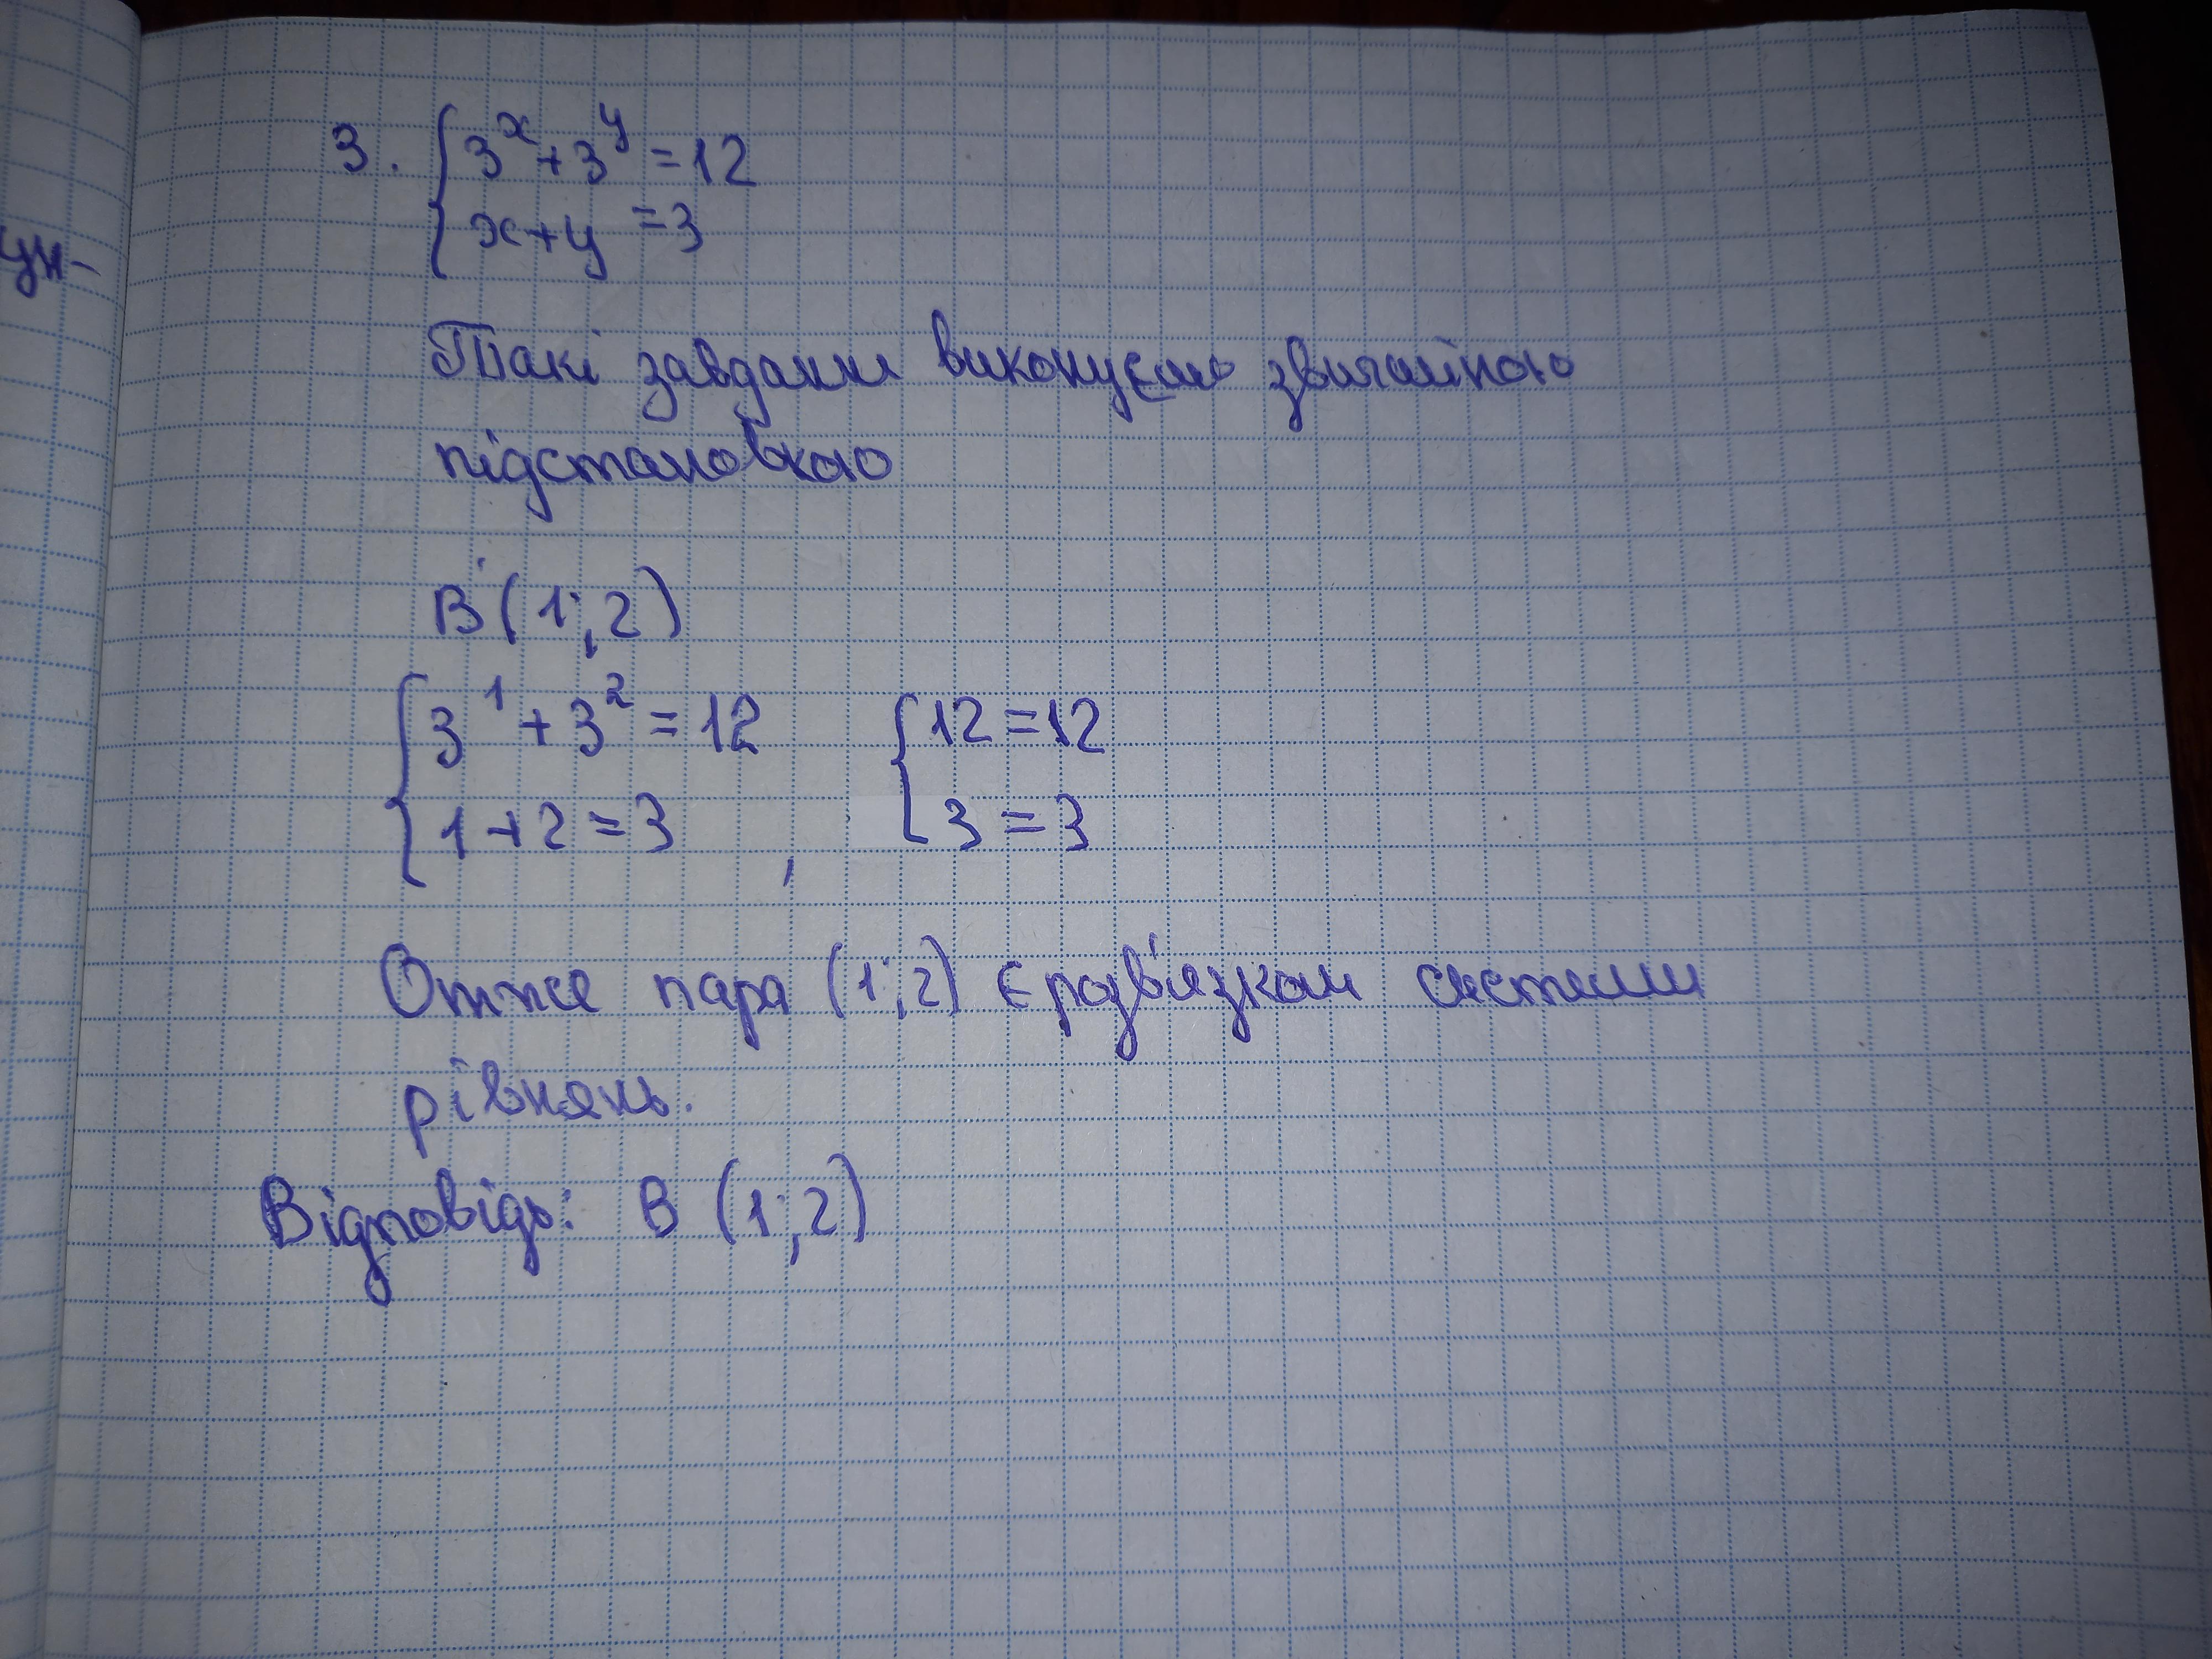 3. { 3^x + 3^y = 12
x + y = 3
Такі завдання виконуємо звичайною
підстановкою
В (1; 2)
{ 3^1 + 3^2 = 12 { 12 = 12
1 + 2 = 3 , 3 = 3
Отже пара (1; 2) є розв'язком системи
рівнянь.
Відповідь: В (1; 2)